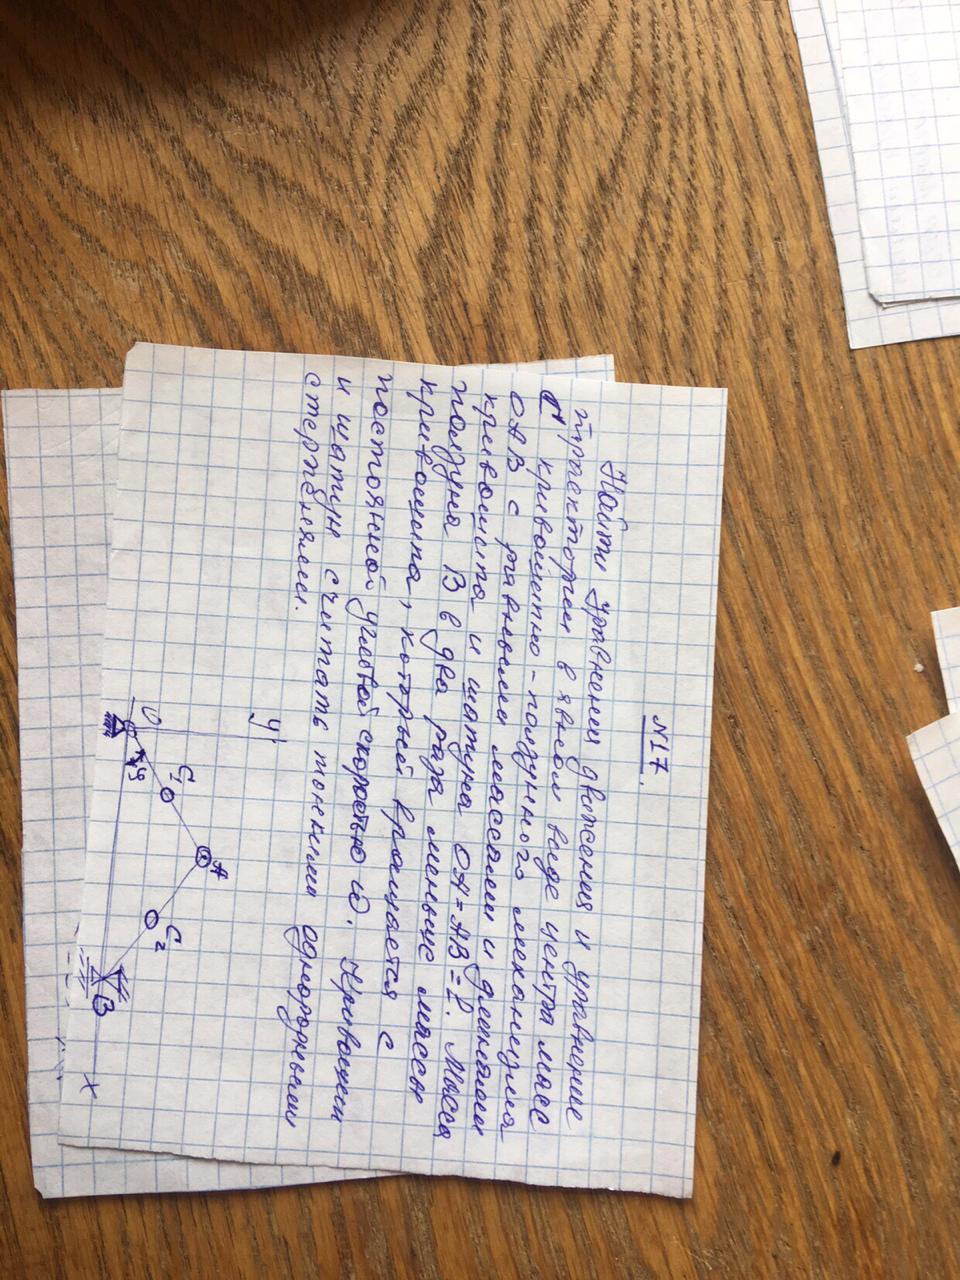 №17.
Найти уравнения движения и уравнение
траектории в явном виде центра масс
C кривошипно-ползунного механизма
OAB с равными массами и длинами
кривошипа и шатуна OA=AB=l. Масса
ползуна B в два раза меньше массы
кривошипа, который вращается с
постоянной угловой скоростью ω. Кривошип
и шатун считать тонкими однородными
стержнями.
y
A
C₁
C₂
O
φ
B
x